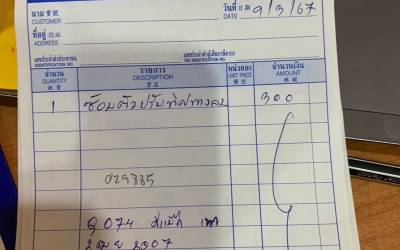 นาม
CUSTOMER
วันที่
DATE 9/3/67
ที่อยู่
ADDRESS
เลขประจำตัวประชาชน
IDENTIFICATION NO.
เลขประจำตัวผู้เสียภาษีอากร
TAX IDENTIFICATION NO.
จำนวน รายการ หน่วยละ จำนวนเงิน
QUANTITY DESCRIPTION UNIT PRICE AMOUNT
1 ซ่อมตัวปรับทิศทางลม 300
029335
074
2007